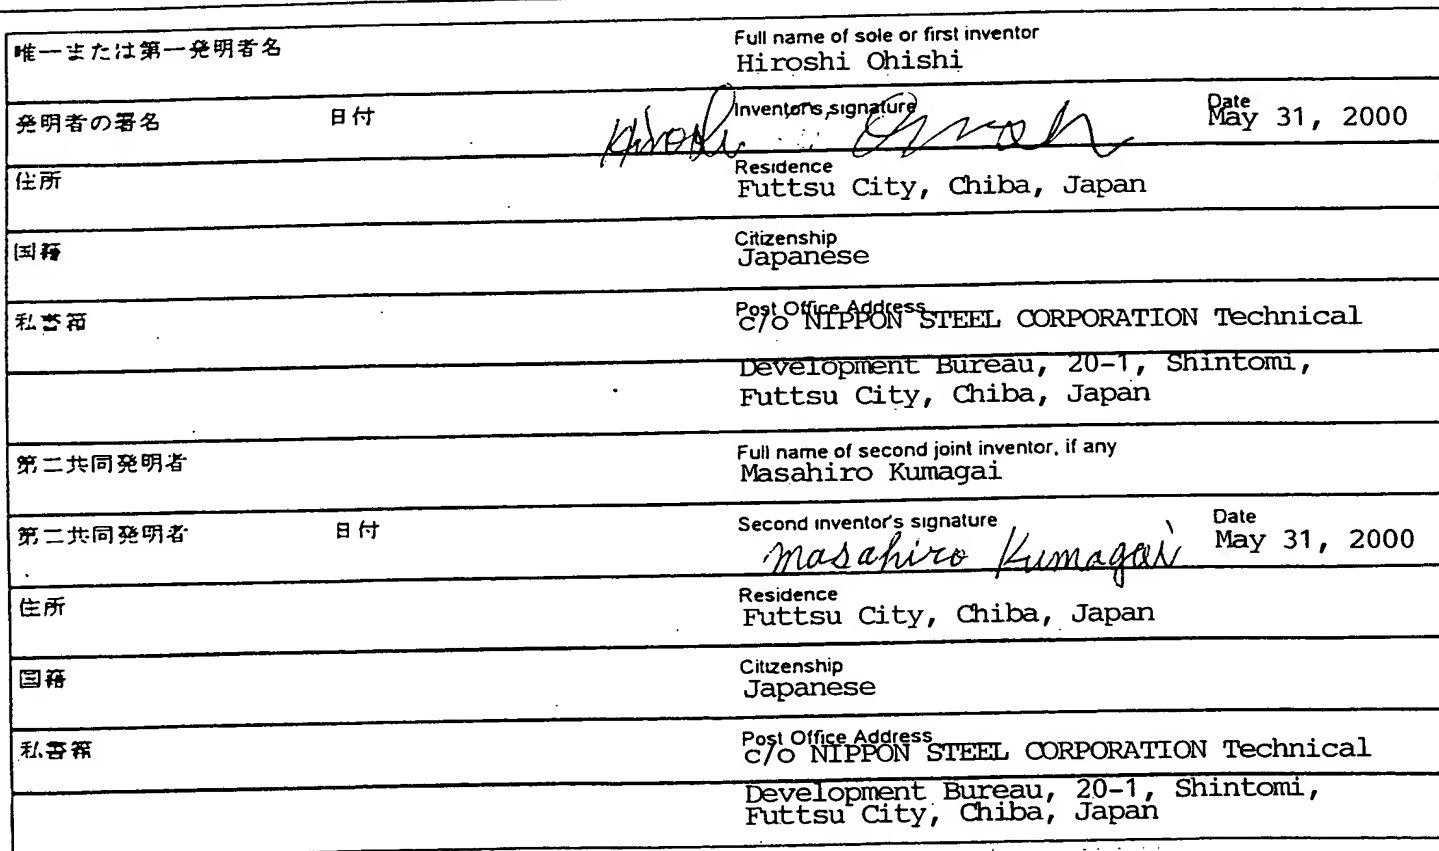 唯一または第一発明者名
Full name of sole or first inventor
Hiroshi Ohishi
発明者の署名 日付
Inventor's signature
Date
Hiroshi
May 31, 2000
住所
Residence
Futtsu City, Chiba, Japan
国籍
Citizenship
Japanese
私書箱
Post Office Address
c/o NIPPON STEEL CORPORATION Technical
Development Bureau, 20-1, Shintomi,
Futtsu City, Chiba, Japan
第二共同発明者
Full name of second joint inventor, if any
Masahiro Kumagai
第二共同発明者 日付
Second inventor's signature
Date
Masahiro Kumagai
May 31, 2000
住所
Residence
Futtsu City, Chiba, Japan
国籍
Citizenship
Japanese
私書箱
Post Office Address
c/o NIPPON STEEL CORPORATION Technical
Development Bureau, 20-1, Shintomi,
Futtsu City, Chiba, Japan